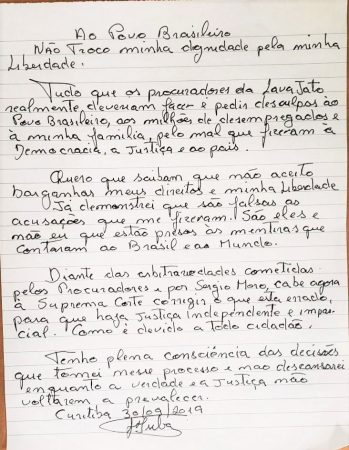 Ao Povo Brasileiro
Não Troco minha dignidade pela minha
Liberdade.
Tudo que os procuradores da Lava Jato
realmente deveriam fazer é pedir desculpas ao
Povo Brasileiro, aos milhões de desempregados e
à minha família, pelo mal que fizeram à
Democracia, à Justiça e ao país.
Quero que saibam que não aceito
barganhar meus direitos e minha Liberdade
Já demonstrei que são falsas as
acusações que me fizeram. São eles e
não eu que estão presos às mentiras que
contaram ao Brasil e ao Mundo.
Diante das arbitrariedades cometidas
pelos Procuradores e por Sergio Moro, cabe agora
à Suprema Corte corrigir o que está errado,
para que haja Justiça independente e impar-
cial. Como é devido a todo cidadão.
Tenho plena consciência das decisões
que tomei nesse processo e não descansarei
enquanto a verdade e a Justiça não
voltarem a prevalecer.
Curitiba 30/09/2019
Lula